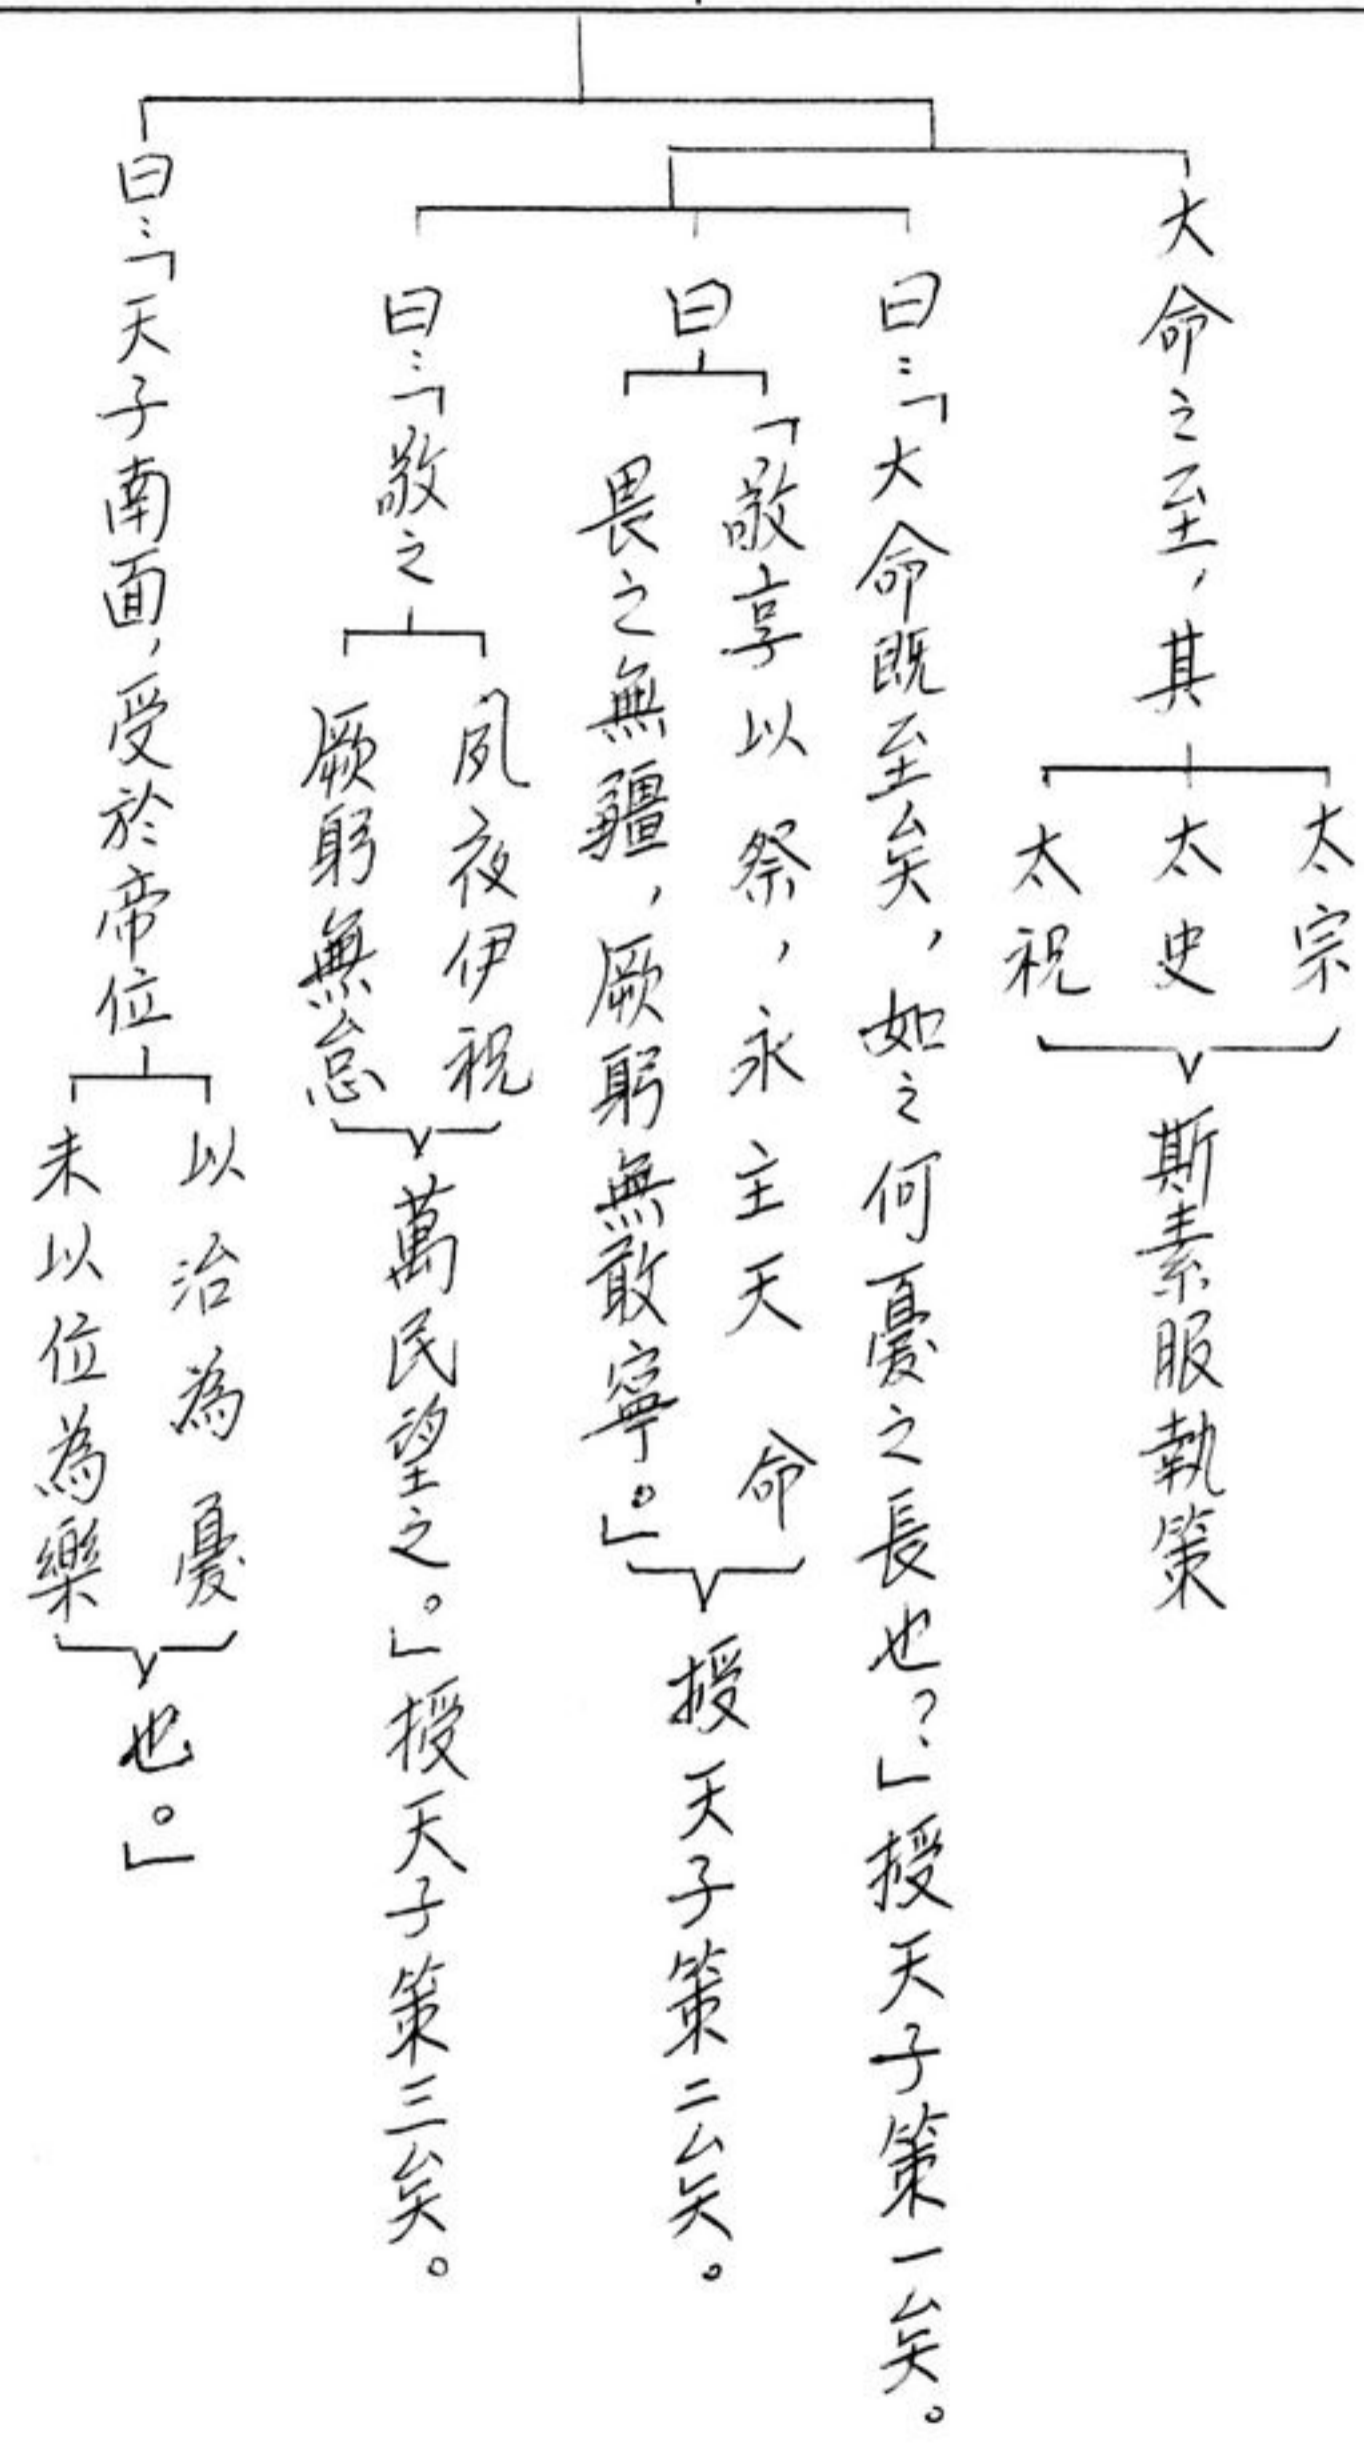 大命之至，其
太宗
太史
太祝
斯素服執策
曰：「大命既至矣，如之何憂之長也？」授天子策一矣。
曰
「敬享以祭，永主天命
畏之無疆，厥躬無敢寧。」
授天子策二矣。
曰：「敬之
夙夜伊祝
厥躬無怠
萬民望之。」授天子策三矣。
曰：「天子南面，受於帝位
以治為憂
未以位為樂
也。」